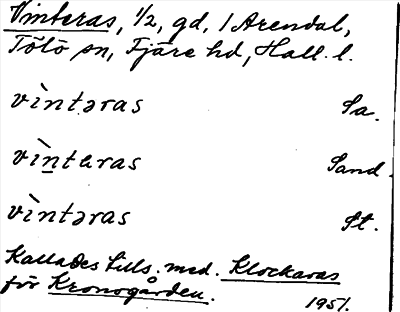 Vinteras, 1/2, gd, i Arendal,
Tölö sn, Fjäre hd, Hall. l.
vìntəras Sa.
vìntɐras Sand.
vìntəras St.
Kallades tills. med. Klockaras
för Kronogården.
1951.